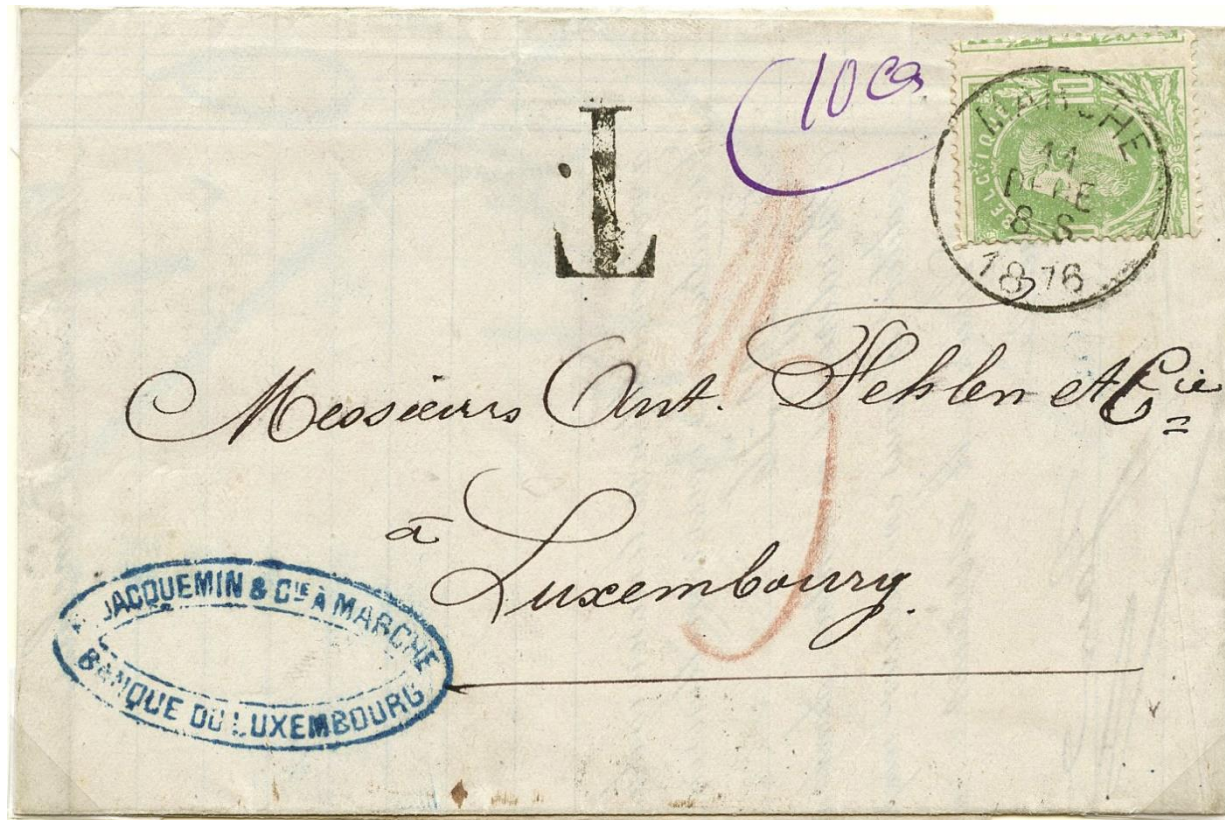 10 cs
T
10
BELGIQUE
MARCHE
11
DECE
8-S
1876
Messieurs Ant. Fehlen et Cie
à
Luxembourg.
JACQUEMIN & CIE À MARCHE
BANQUE DU LUXEMBOURG